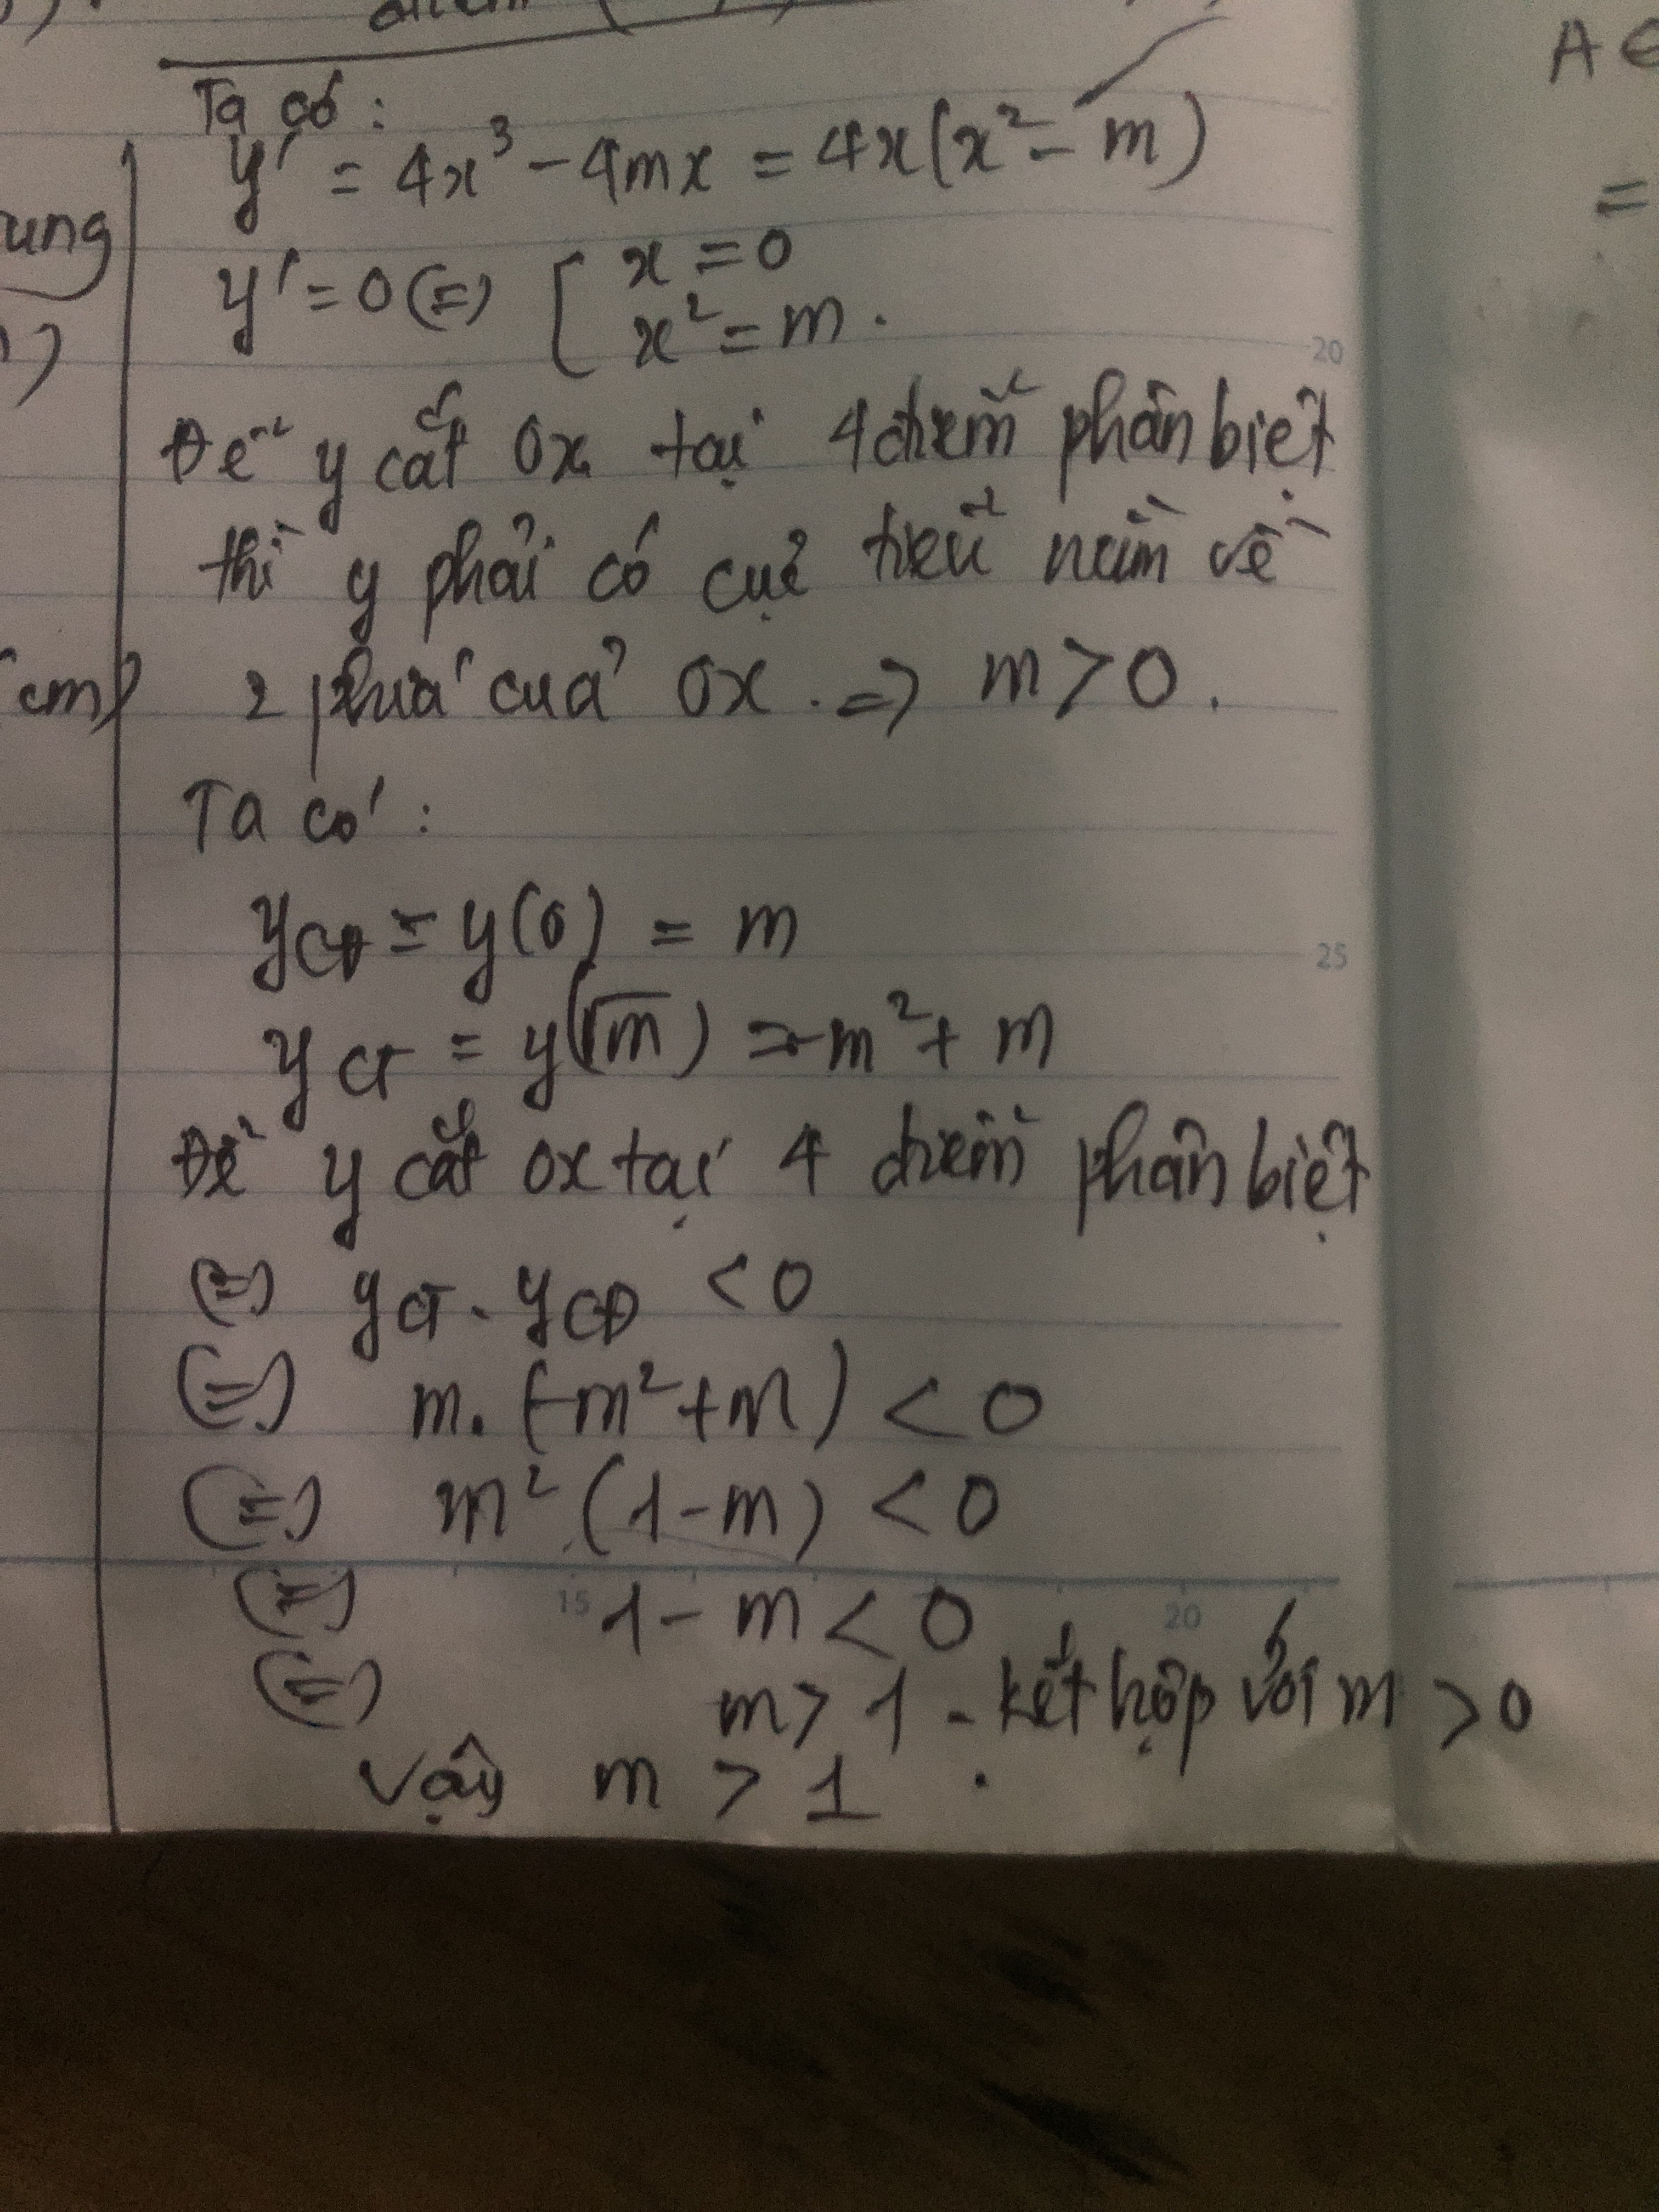 Ta có:
y' = 4x³ - 4mx = 4x(x² - m)
A
=
ung
y' = 0 (=) [ x = 0
x² = m.
20
Để y cắt Ox tại 4 điểm phân biệt
thì y phải có cực tiểu nằm về
cm)
2 phía của Ox. => m > 0.
Ta có:
yCĐ = y(0) = m
25
yCT = y(√m) = -m² + m
Để y cắt Ox tại 4 điểm phân biệt
(=) yCT . yCĐ < 0
(=) m. (-m² + m) < 0
(=) m² (1 - m) < 0
(=) 1 - m < 0
15 20
(=) m > 1 - kết hợp với m > 0
Vậy m > 1.